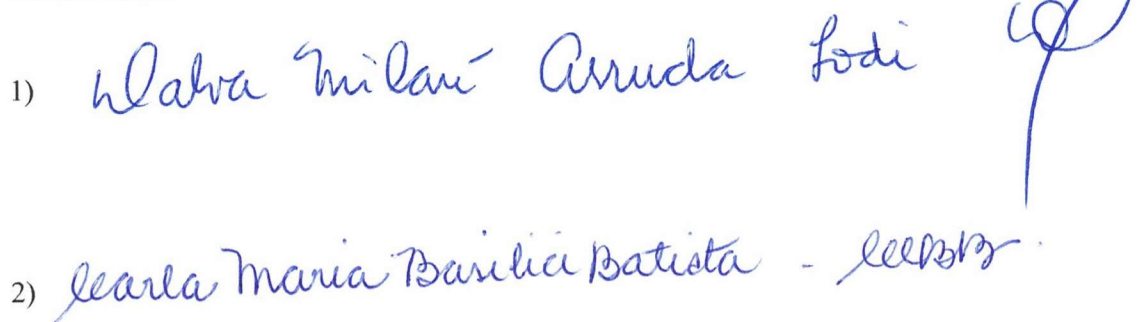 1) Dalva Milaré Arruda Lodi
2) Carla Maria Basilia Batista - CMBB